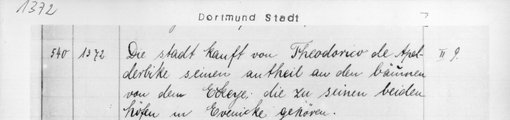 1372
Dortmund Stadt
540 1372 Die stadt kauft von Theodorico de Apel- II 9.
derbike seinen antheil an den bäumen
von dem die zu seinen beiden
höfen in Evenicke gehören.